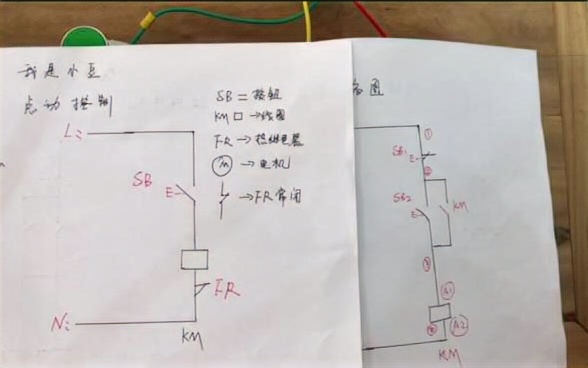 我是小豆
点动控制
L:
SB
E
FR
N:
KM
SB = 按钮
KM □ → 线圈
FR → 热继电器
M → 电机
→ FR常闭
图
①
SB1
E
②
SB2
E
KM
③
A1
A2
KM